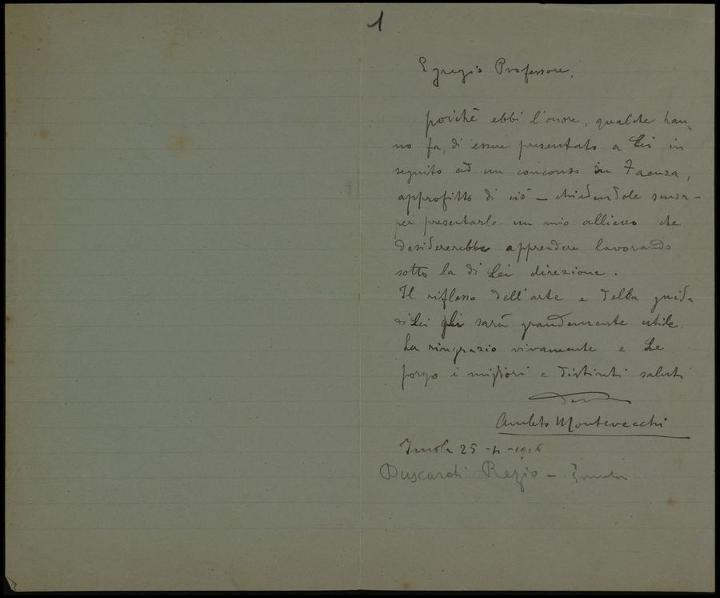 1
Egregio Professore,
poichè ebbi l'onore, qualche han-
no fa, di essere presentato a Lei in
seguito ad un concorso in Faenza,
approfitto di ciò – chiedendole scusa –
per presentarle un mio allievo che
desidererebbe apprendere lavorando
sotto la di Lei direzione.
Il riflesso dell'arte e della guida
di Lei gli sarà grandemente utile
La ringrazio vivamente e Le
porgo i migliori e distinti saluti
Amleto Montevecchi
Imola 25